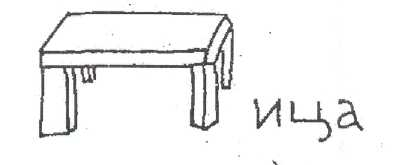 ица